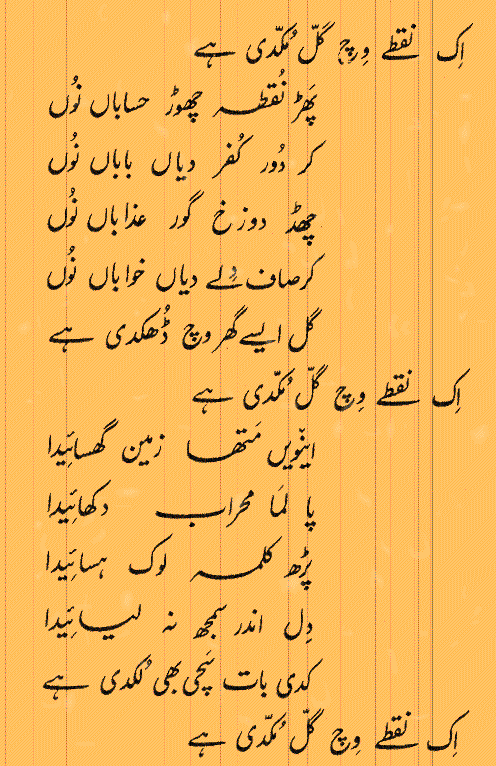 اِک نقطے وِچ گَلّ مُکدّی ہے
پَھڑ نُقطہ چھوڑ حساباں نُوں
کر دُور کُفر دیاں باباں نُوں
چھڈ دوزخ گور عذاباں نُوں
کر صاف دِلے دیاں خواباں نُوں
گل ایسے گھر وچ ڈُھکدی ہے
اِک نقطے وِچ گلّ مُکدّی ہے
اینویں مَتھا زمین گھسائیدا
پا لمَا محراب دکھائیدا
پڑھ کلمہ لوک ہسائیدا
دِل اندر سمجھ نہ لیائیدا
کدی بات سَچی بھی لُکدی ہے
اِک نقطے وِچ گلّ مُکدّی ہے